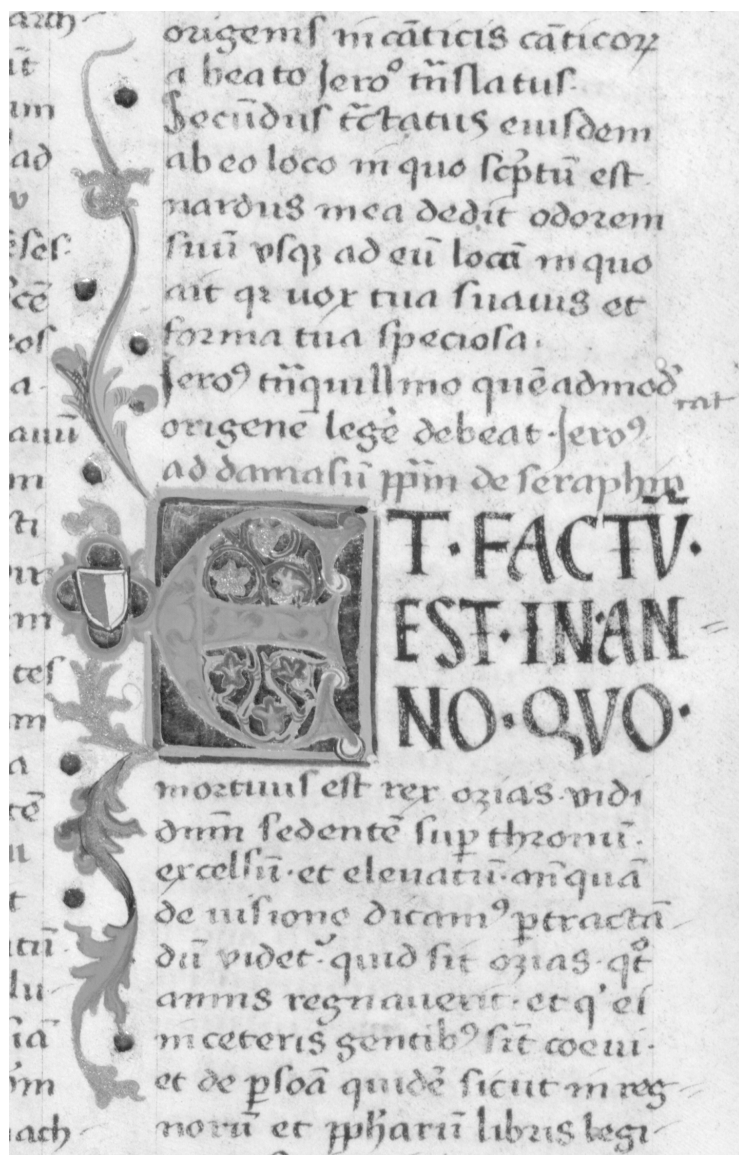 origenis in cāticis cāticoꝝ
a beato Jero° tn̄slatus·
Secūdus tc̄tatus eiusdem
ab eo loco in quo scp̄tū est
nardus mea dedit odorem
suū vsqꝫ ad eū locū in quo
ait qꝛ uox tua suauis et
forma tua speciosa·
Jeroꝰ tn̄quillino quēadmod̄
origenē legē debeat· Jeroꝰ
ad damasū pp̄m de seraphin
ET·FACTV̄·
EST·IN·AN
NO·QVO·
mortuus est rex ozias· vidi
dn̄m sedentē suꝑ thronū·
excelsū· et eleuatū· an̄quā
de uisione dicamꝰ ꝑtractā
dū videt᷑· quid sit ozias· qt̊
annis regnauerit· et qͥ ei
in ceteris gentibꝰ sīt coeui·
et de ꝑsoā quidē sicut in reg
norū et ꝓphetarū libris legi